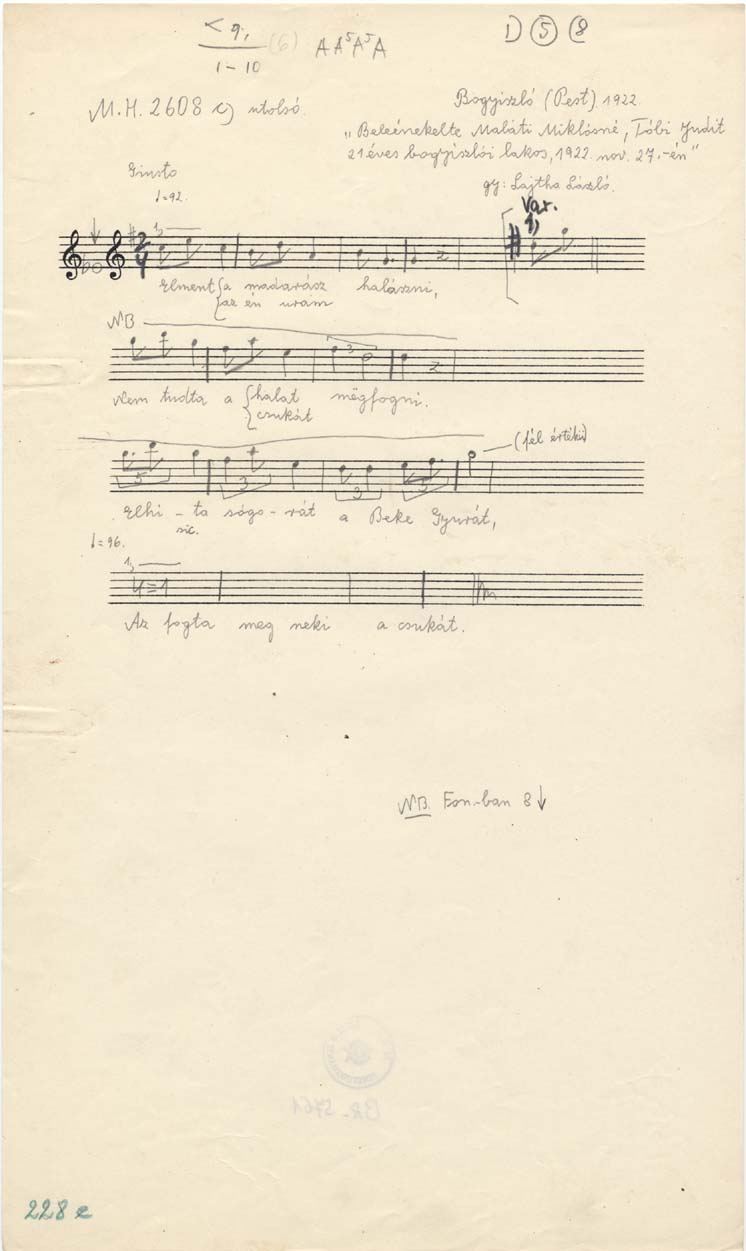 < 9,
1-10
(6)
A A⁵ A⁵ A
1) ⑤ ⑧
M.H. 2608 c) utolsó.
Bogyiszló (Pest) 1922.
"Beleénekelte Maláti Miklósné, Tóbi Judit
21 éves bogyiszlói lakos, 1922. nov. 27.-én"
gy: Lajtha László.
Giusto
♩=92.
Var.
1,
1,
2/4
Elment {a madarász halászni,
{az én uram
NB
3
Nem tudta a {halat mëgfogni.
{csukát
(fél értékű)
5 3 3 3
Elhi - ta sógo - rát a Beke Gyurát,
sic.
♩=96.
1,
4=1
Az fogta meg neki a csukát.
NB. Fon.-ban 8↓
BR-5761
228 e